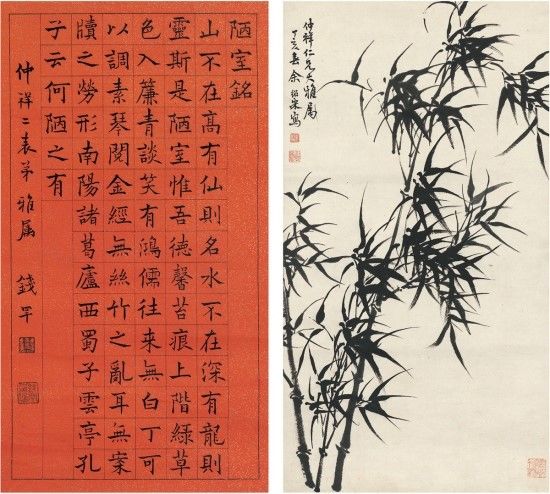 陋室銘
山不在高有仙則名水不在深有龍則
靈斯是陋室惟吾德馨苔痕上階綠草
色入簾青談笑有鴻儒往來無白丁可
以調素琴閱金經無絲竹之亂耳無案
牘之勞形南陽諸葛廬西蜀子雲亭孔
子云何陋之有
仲祥二表弟雅屬 錢罕
仲祥仁兄大雅屬
丁亥春余紹宋寫